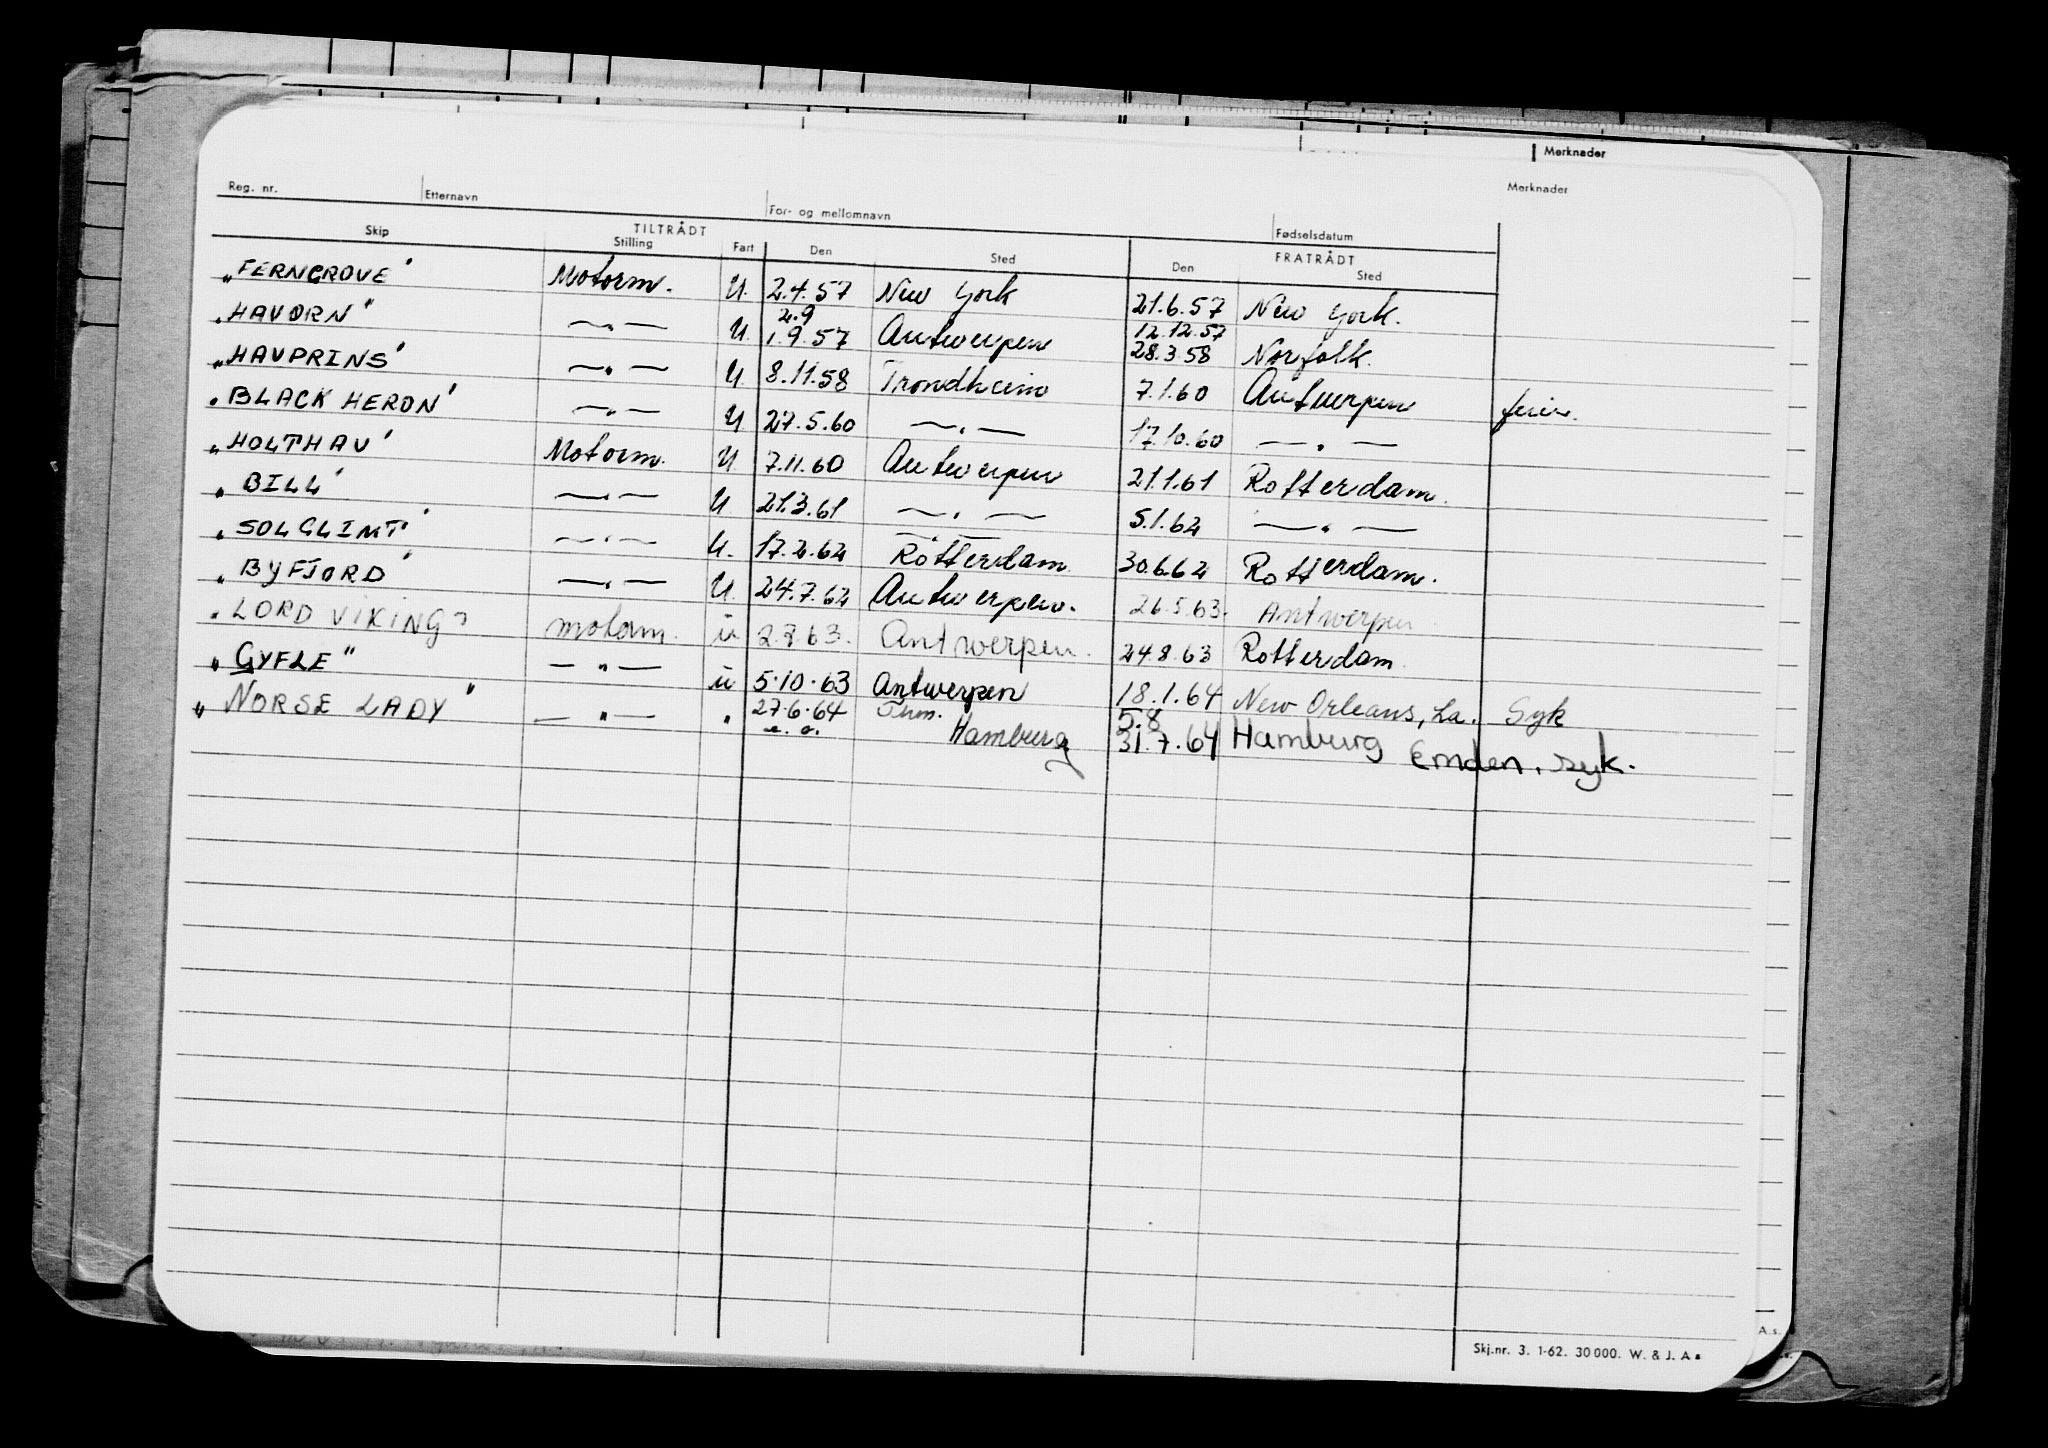 Merknader
Merknader
Reg. nr. Etternavn For- og mellomnavn Fødselsdatum
TILTRÅDT FRATRÅDT
Skip Stilling Fart Den Sted Den Sted
"FERNGROVE" Motorm. U. 2.4.57 New York 21.6.57 New York.
2.9 12.12.57
"HAVØRN" —„— U. 1.9.57 Antwerpen 28.3.58 Norfolk.
"HAVPRINS" —„— U. 8.11.58 Trondheim 7.1.60 Antwerpen ferie.
"BLACK HERON" —„— U 27.5.60 —„— 17.10.60 —„—
"HOLTHAV" Motorm. U 7.11.60 Antwerpen 21.1.61 Rotterdam.
"BILL" —„— U 21.3.61 —„— 5.1.62 —„—
"SOLGLIMT" —„— U. 17.2.62 Rotterdam 30.6.62 Rotterdam.
"BYFJORD" —„— U 24.7.62 Antwerpen. 26.5.63. Antwerpen.
"LORD VIKING" motorm. ü 2.7.63. Antwerpen. 24.8.63 Rotterdam.
"GYFLE" —„— ü 5.10.63 Antwerpen 18.1.64 New Orleans, La. Syk
"NORSE LADY" —„— „ 27.6.64 Hamburg 5.8
31.7.64 Hamburg Emden. syk.
Skj.nr. 3. 1-62. 30 000. W. & J. A s
A.s.